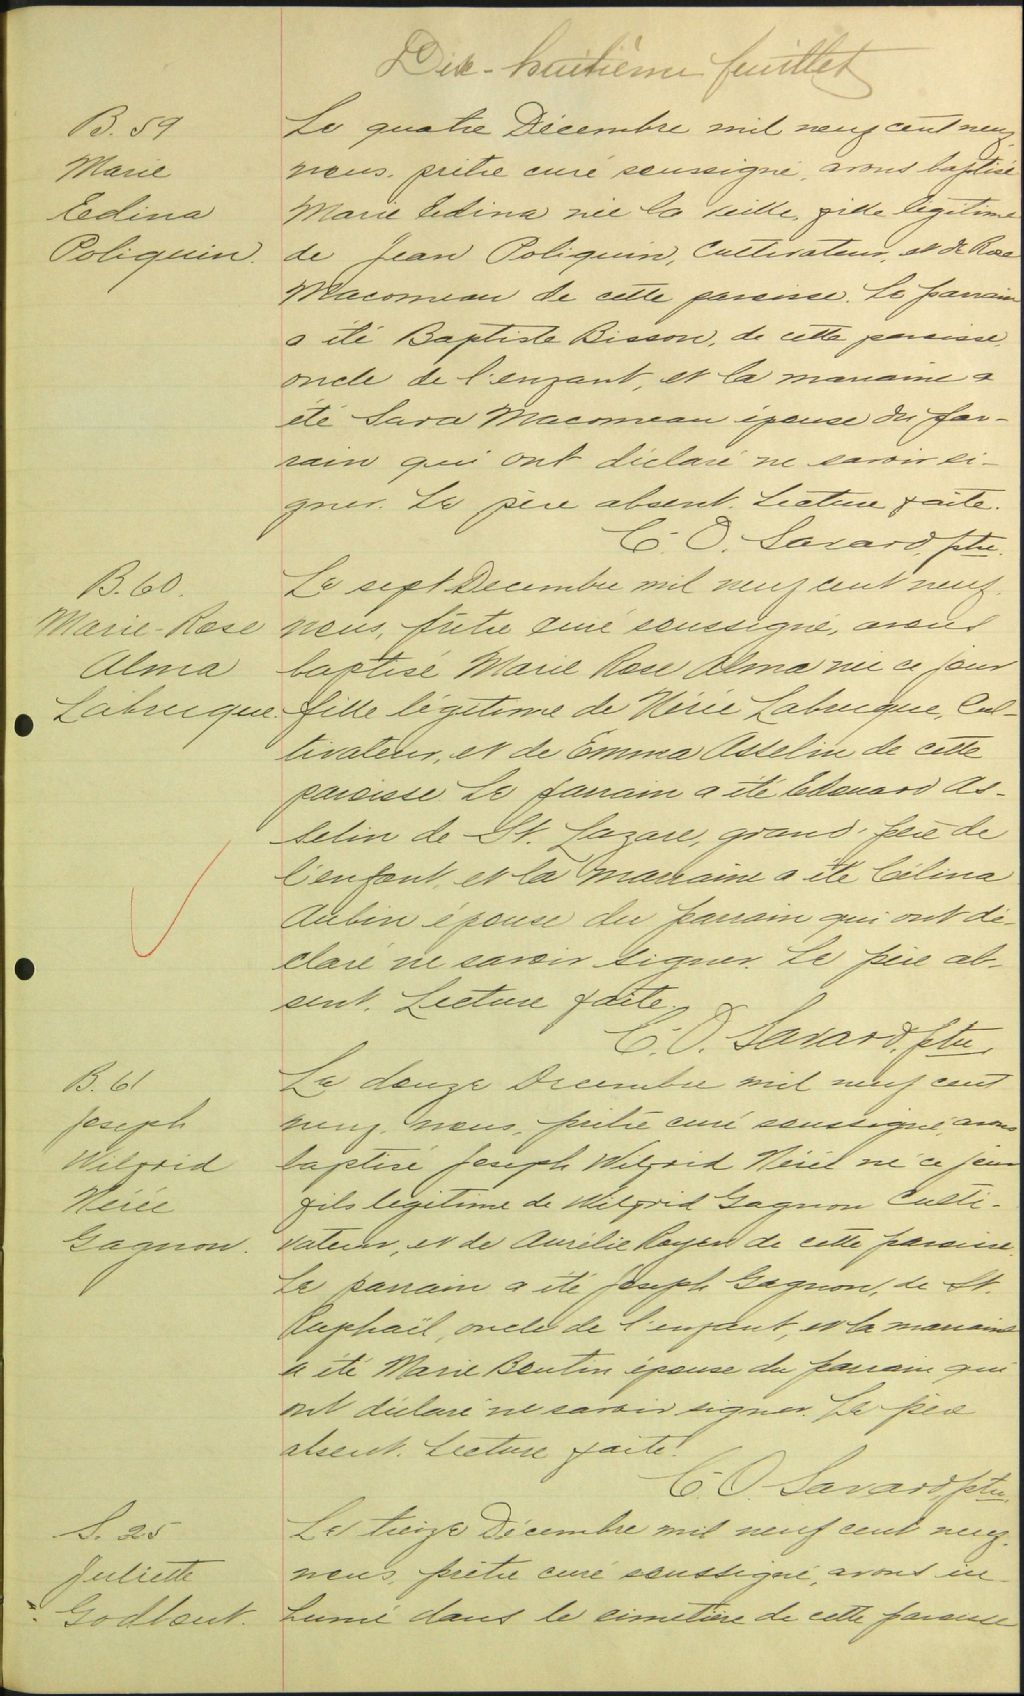 Dix-huitième feuillet
B. 59
Marie
Edina
Poliquin.
Le quatre Décembre mil neuf cent neuf,
nous, prêtre curé soussigné, avons baptisé
Marie Edina née la veille, fille légitime
de Jean Poliquin, Cultivateur, et de Rose
Macomeau de cette paroisse. Le parrain
a été Baptiste Bisson, de cette paroisse,
oncle de l'enfant, et la marraine a
été Sara Macomeau épouse du par-
rain qui ont déclaré ne savoir si-
gner. Le père absent. Lecture faite.
C. O. Savard, ptre.
B. 60.
Marie-Rose
Alma
Labrecque.
Le sept Decembre mil neuf cent neuf,
nous, prêtre curé soussigné, avons
baptisé Marie Rose Alma née ce jour
fille légitime de Nérée Labrecque, Cul-
tivateur, et de Emma Asselin de cette
paroisse. Le parrain a été Edouard As-
selin de St. Lazare, grand-père de
l'enfant, et la marraine a été Célina
Aubin épouse du parrain qui ont dé-
claré ne savoir signer. Le père ab-
sent. Lecture faite.
C. O. Savard, ptre.
B. 61
Joseph
Wilfrid
Nérée
Gagnon.
Le douze Decembre mil neuf cent
neuf, nous, prêtre curé soussigné, avons
baptisé Joseph Wilfrid Nérée né ce jour
fils légitime de Wilfrid Gagnon Culti-
vateur, et de Aurélie Royer de cette paroisse.
Le parrain a été Joseph Gagnon, de St.
Raphaël, oncle de l'enfant, et la marraine
a été Marie Boutin épouse du parrain qui
ont déclaré ne savoir signer. Le père
absent. Lecture faite.
C. O. Savard, ptre.
S. 25
Juliette
Godbout.
Le treize Décembre mil neuf cent neuf,
nous, prêtre curé soussigné, avons in-
humé dans le cimetière de cette paroisse